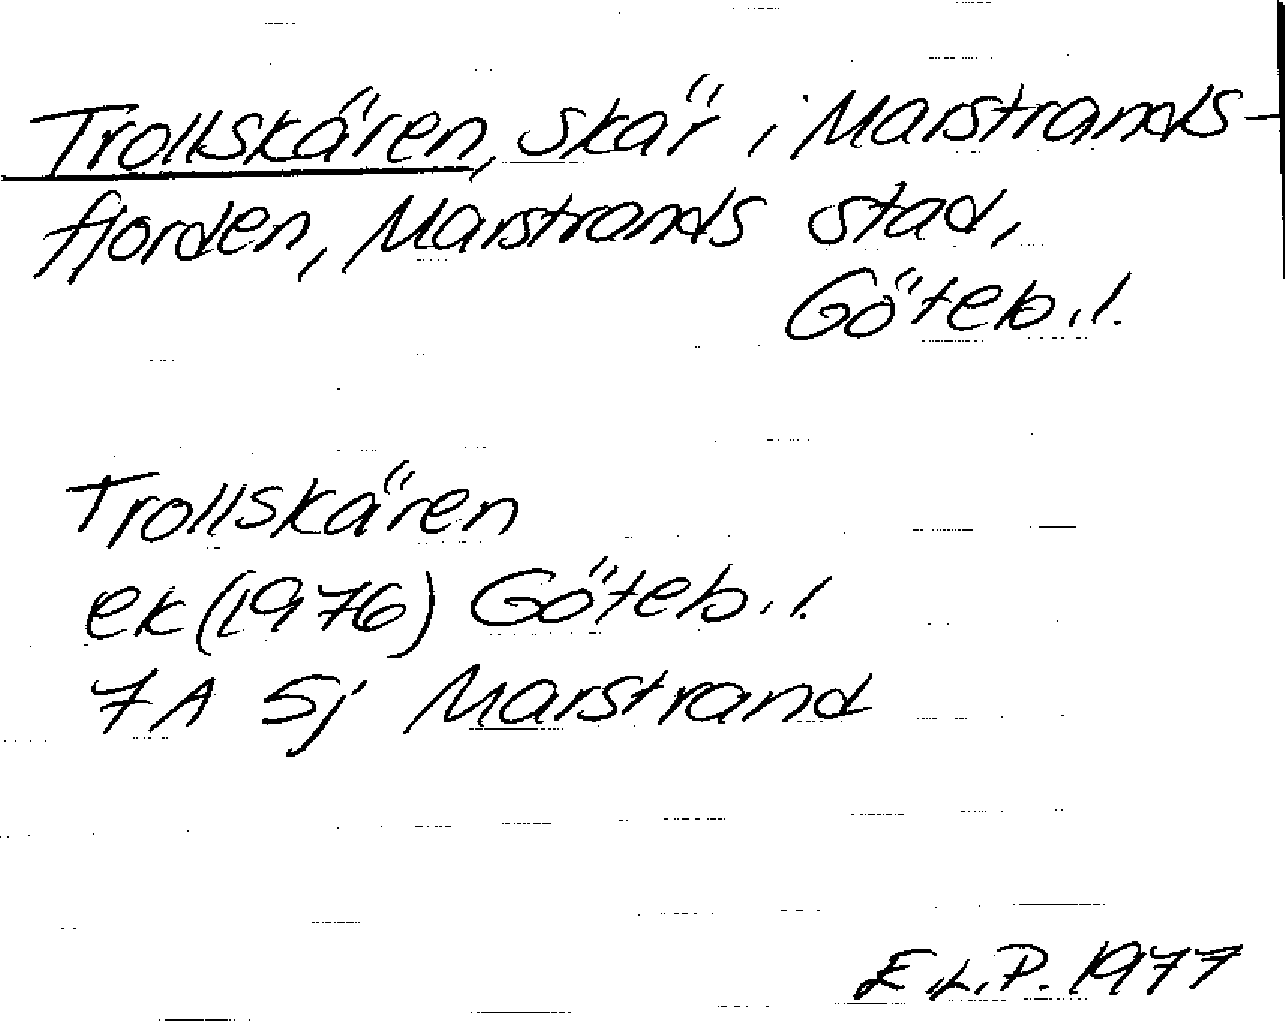 Trollskären, skär i Marstrands-
fjorden, Marstrands stad,
Göteb.l.
Trollskären
ek (1976) Göteb.l.
7A Sj Marstrand
E.L.P. 1977